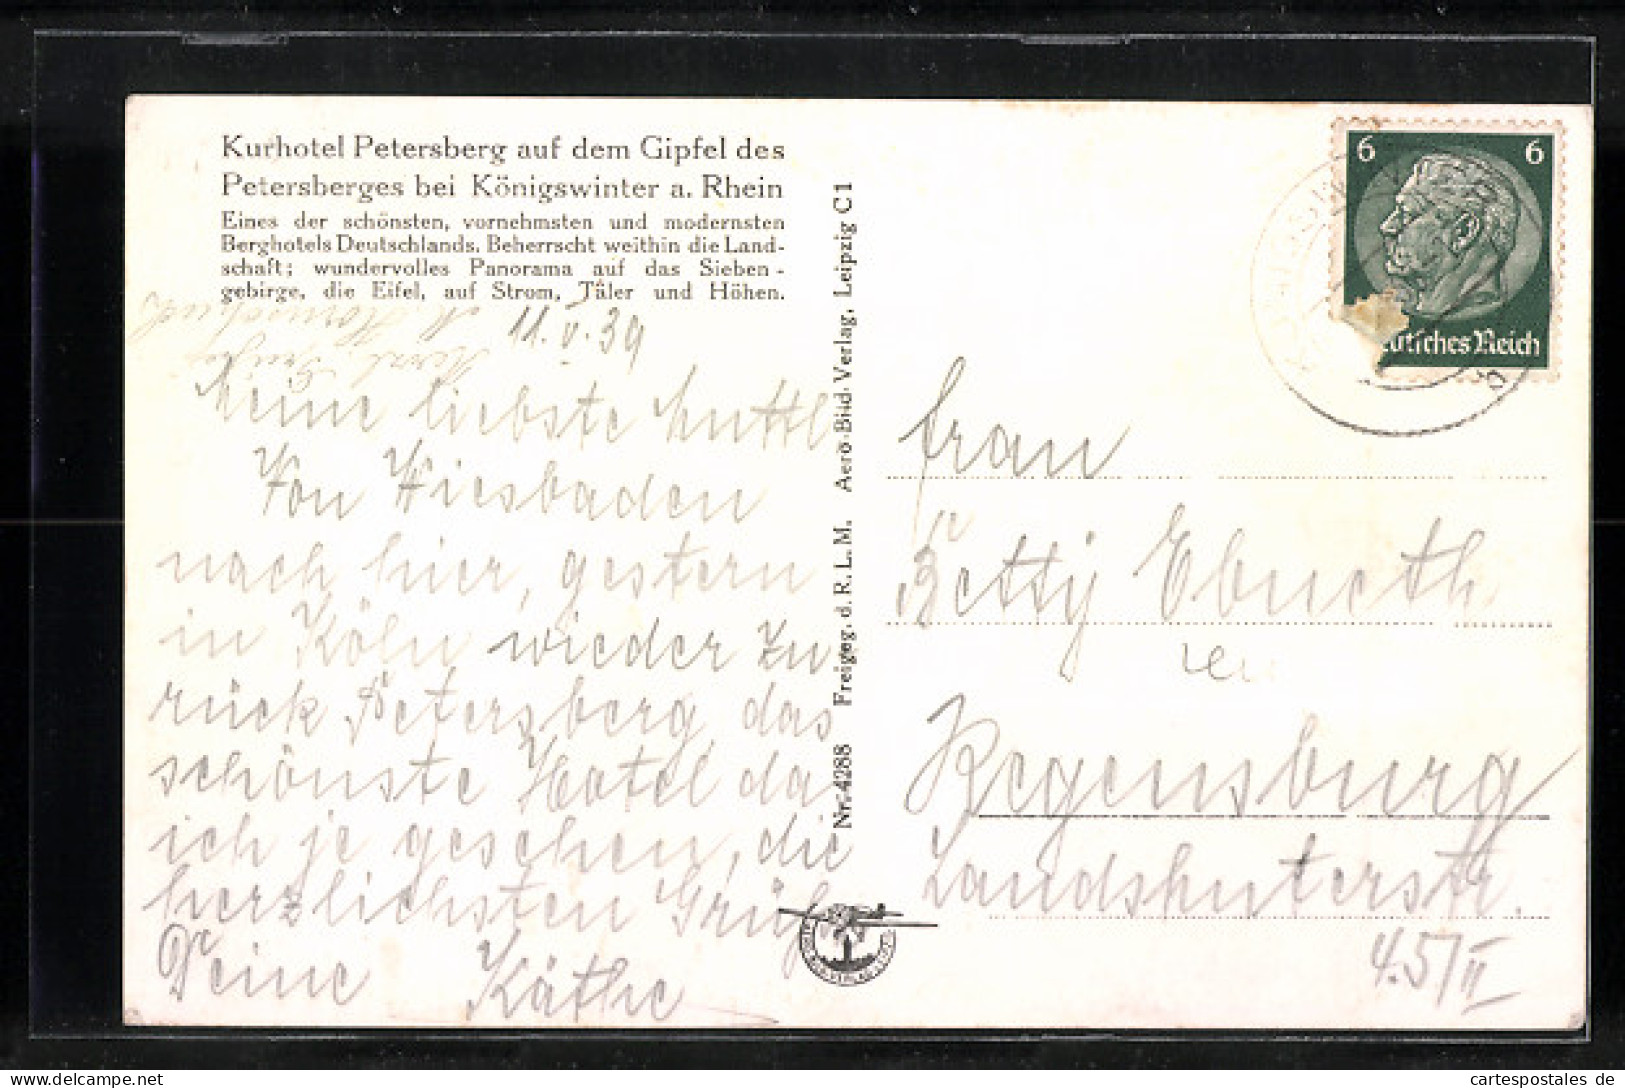 Kurhotel Petersberg auf dem Gipfel des
Petersberges bei Königswinter a. Rhein
Eines der schönsten, vornehmsten und modernsten
Berghotels Deutschlands. Beherrscht weithin die Land-
schaft; wundervolles Panorama auf das Sieben-
gebirge, die Eifel, auf Strom, Täler und Höhen.
11.V.39
Meine liebste Muttl
Von Wiesbaden
nach hier, gestern
in Köln wieder zu
rück Petersberg das
schönste Hotel da
ich je gesehen, die
herzlichsten Grüße
Deine Käthe
Nr. 4288 Freigeg. d. R. L. M. Aero-Bild-Verlag, Leipzig C 1
6 6
Deutsches Reich
Frau
Betty Ebneth
Regensburg
Landshuterstr.
4.5/II
cartespostales de